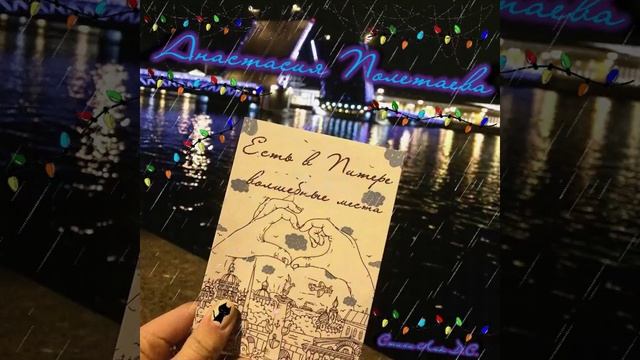 Анастасия Полетаева
Есть в Питере
волшебные места